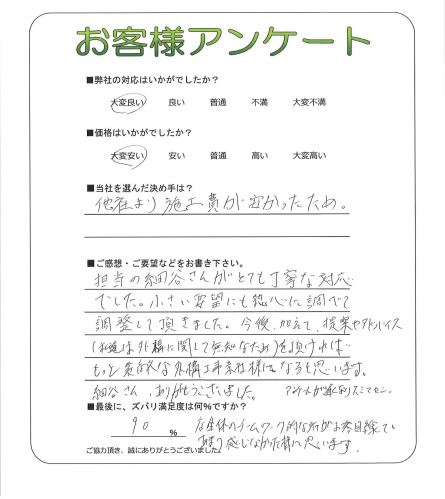 お客様アンケート
■弊社の対応はいかがでしたか？
大変良い 良い 普通 不満 大変不満
■価格はいかがでしたか？
大変安い 安い 普通 高い 大変高い
■当社を選んだ決め手は？
他社より施工費が安かったため。
■ご感想・ご要望などをお書き下さい。
担当の細谷さんがとても丁寧な対応
でした。小さい要望にも熱心に調べて
調整して頂きました。今後、加えて、提案やアドバイス
(私達は外構に関して無知なため)を頂ければ
もっと素敵な外構工事会社様になると思います。
細谷さん、ありがとうございました。
アンケートが遅くなりスミマセン。
■最後に、ズバリ満足度は何%ですか？
90 %
のチームワーク的な所がお客目線で
感じなかった様に思います。
ご協力頂き、誠にありがとうございました。